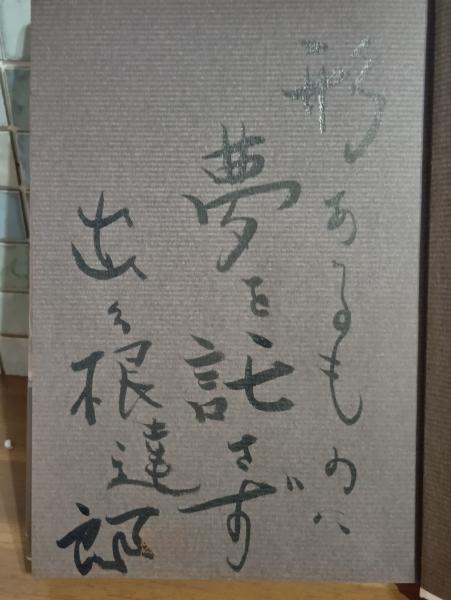 形あるものに
夢を託さず
出久根達郎